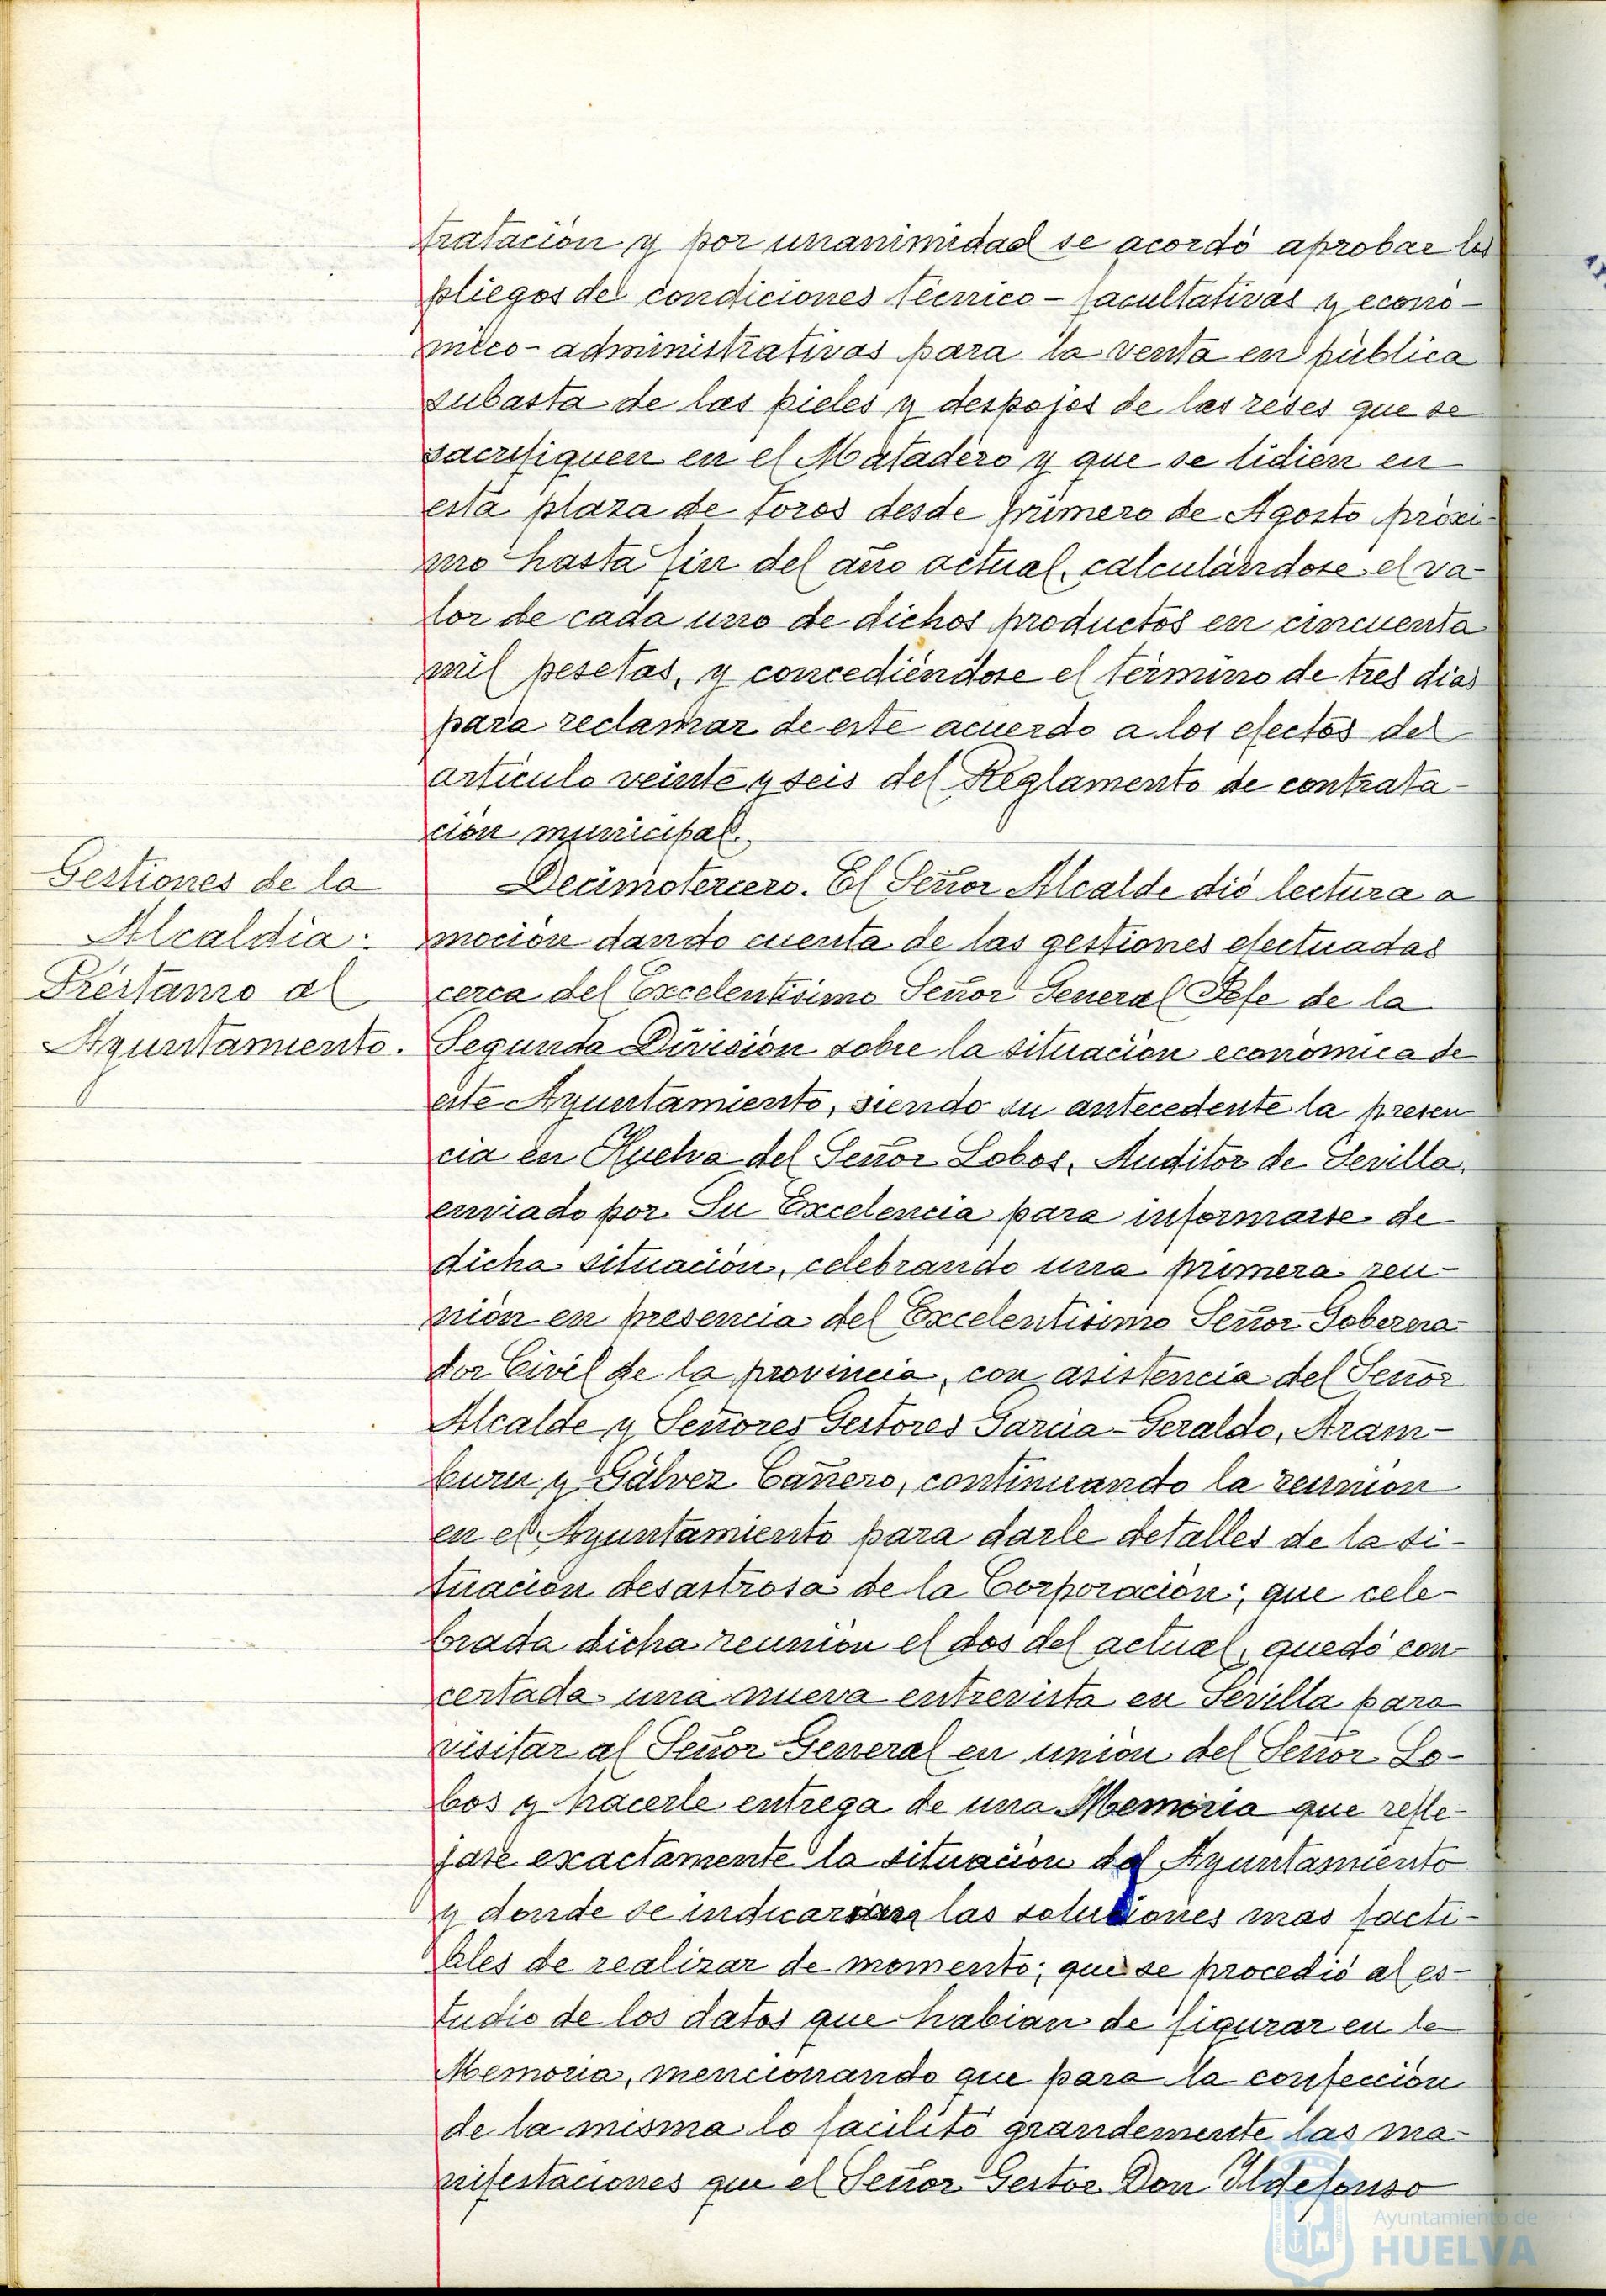 tratación y por unanimidad se acordó aprobar los
pliegos de condiciones técnico-facultativas y econó-
mico-administrativas para la venta en pública
subasta de las pieles y despojos de las reses que se
sacrifiquen en el Matadero y que se lidien en
esta plaza de toros desde primero de Agosto próxi-
mo hasta fin del año actual, calculándose el va-
lor de cada uno de dichos productos en cincuenta
mil pesetas, y concediéndose el término de tres dias
para reclamar de este acuerdo a los efectos del
artículo veinte y seis del Reglamento de contrata-
ción municipal.
Gestiones de la
Alcaldia:
Préstamo al
Ayuntamiento.
Decimotercero. El Señor Alcalde dió lectura a
moción dando cuenta de las gestiones efectuadas
cerca del Excelentísimo Señor General Jefe de la
Segunda División sobre la situación económica de
este Ayuntamiento, siendo su antecedente la presen-
cia en Huelva del Señor Lobos, Auditor de Sevilla,
enviado por Su Excelencia para informarse de
dicha situación, celebrando una primera reu-
nión en presencia del Excelentísimo Señor Goberna-
dor Civil de la provincia, con asistencia del Señor
Alcalde y Señores Gestores Garcia-Geraldo, Aram-
buru y Gálvez Cañero, continuando la reunion
en el Ayuntamiento para darle detalles de la si-
tuación desastrosa de la Corporación; que cele-
brada dicha reunión el dos del actual, quedó con-
certada una nueva entrevista en Sevilla para
visitar al Señor General en unión del Señor Lo-
bos y hacerle entrega de una Memoria que refle-
jase exactamente la situación del Ayuntamiento
y donde se indicarian las soluciones mas facti-
bles de realizar de momento; que se procedió al es-
tudio de los datos que habian de figurar en la
Memoria, mencionando que para la confección
de la misma lo facilitó grandemente las ma-
nifestaciones que el Señor Gestor Don Ildefonso
Ayuntamiento de
HUELVA